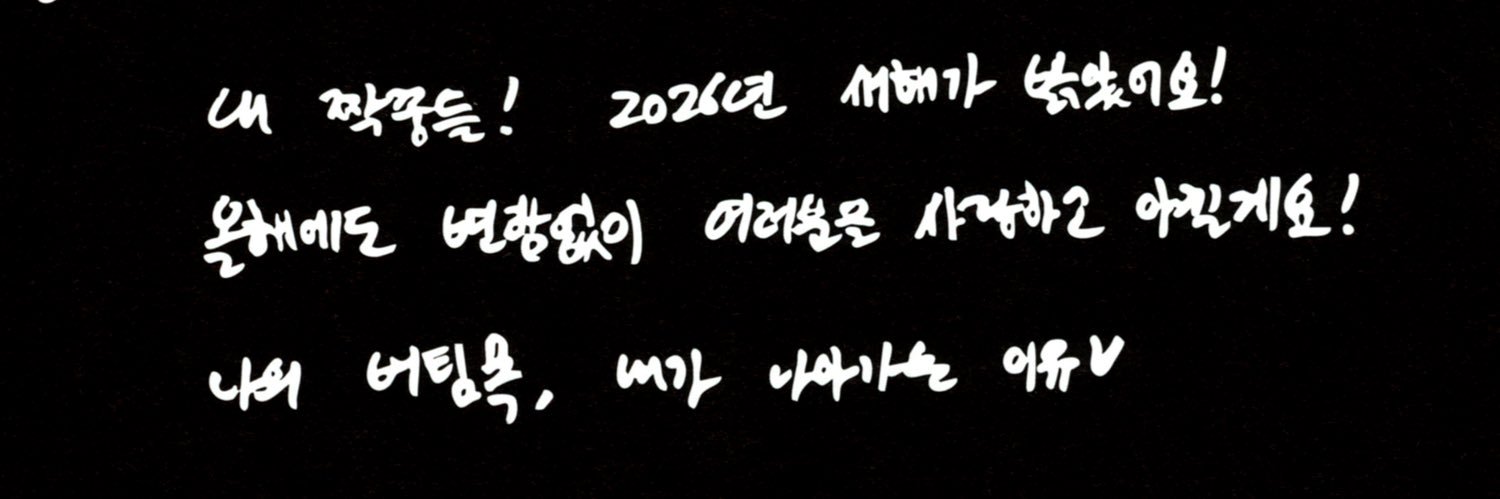 내 짝꿍들! 2026년 새해가 밝았어요!
올해에도 변함없이 여러분을 사랑하고 아낄게요!
나의 버팀목, 내가 나아가는 이유♥